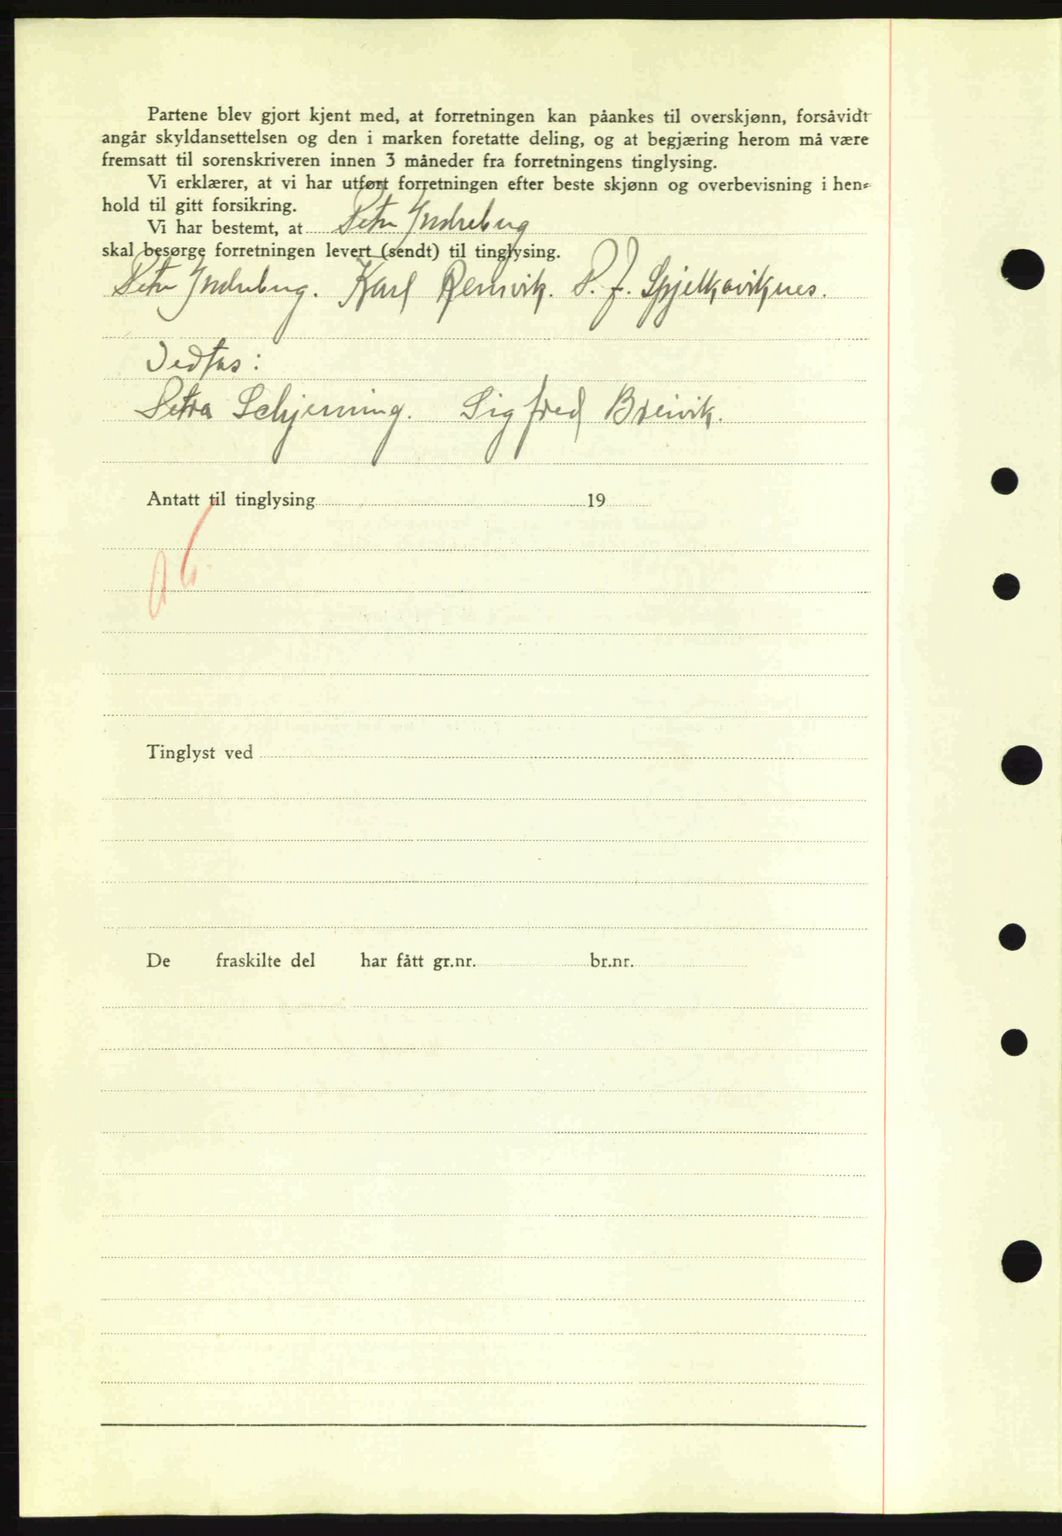 Partene blev gjort kjent med, at forretningen kan påankes til overskjønn, forsåvidt
angår skyldansettelsen og den i marken foretatte deling, og at begjæring herom må være
fremsatt til sorenskriveren innen 3 måneder fra forretningens tinglysing.
Vi erklærer, at vi har utført forretningen efter beste skjønn og overbevisning i hen-
hold til gitt forsikring.
Vi har bestemt, at Peter Indrebug
skal besørge forretningen levert (sendt) til tinglysing.
Peter Indrebug. Karl Remvik. P. J. Spjelkaviknes.
Vedtas:
Petra Schjerning. Sigfred Breivik.
Antatt til tinglysing 19
Tinglyst ved
De fraskilte del har fått gr.nr. br.nr.